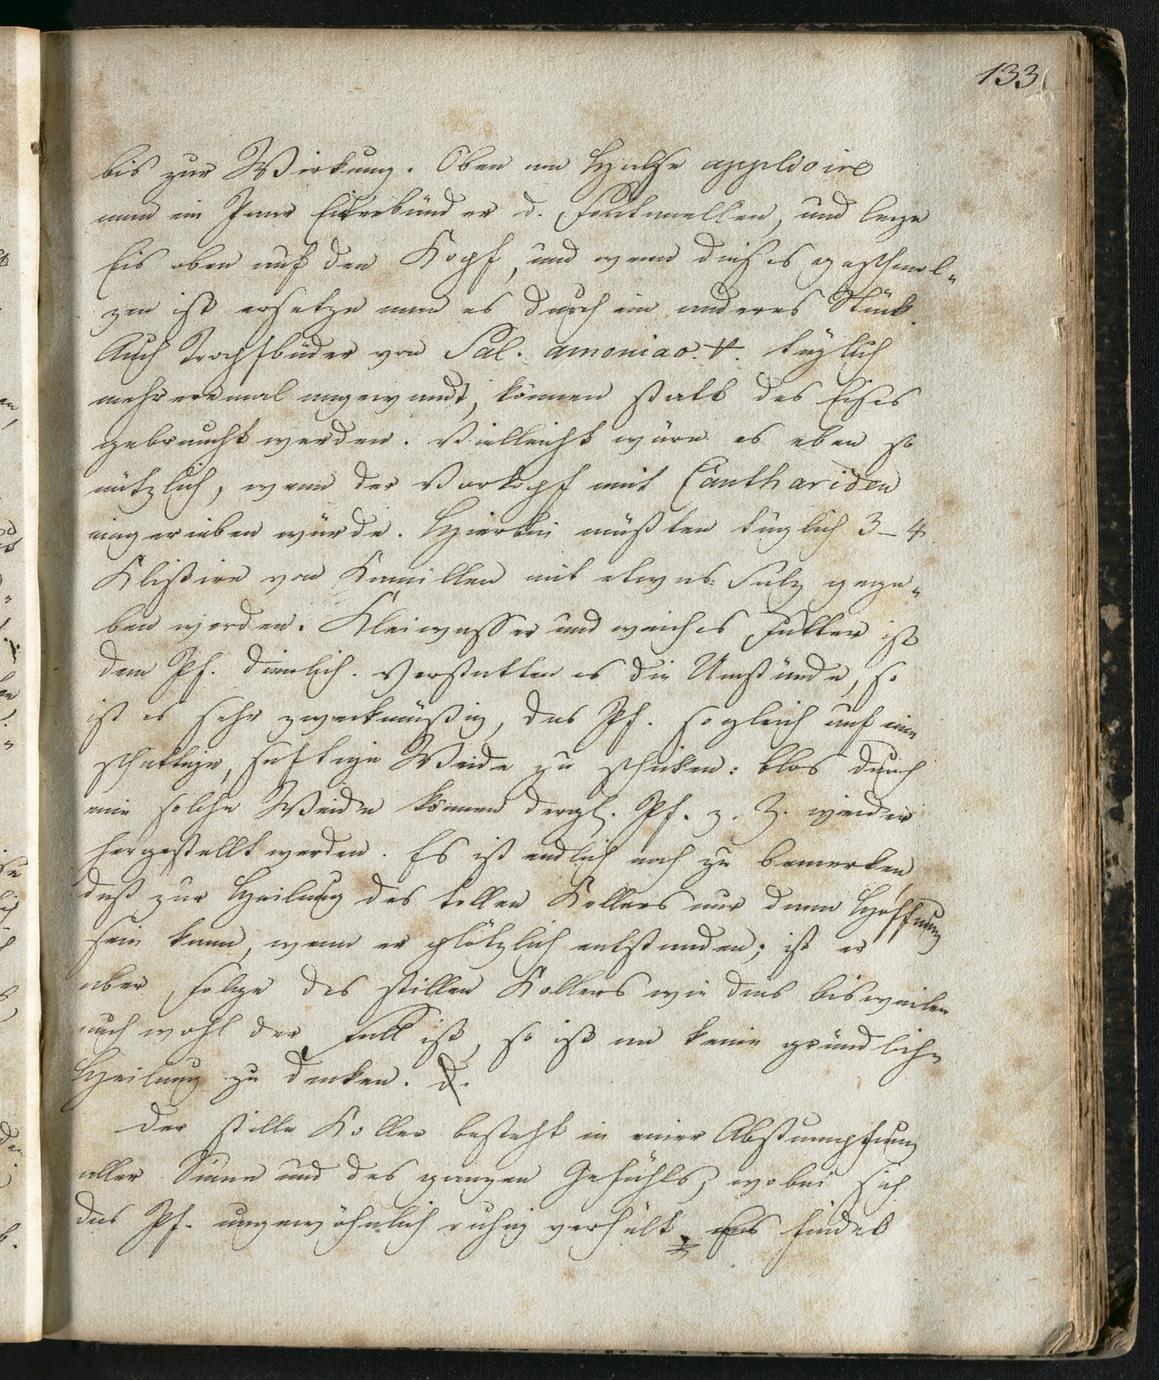 133
bis zur Wirkung. Oben am Halse applicire
man ein Paar Eiterbänder d. Fontanellen, und lege
Eis oben auf den Kopf, und wenn dieses geschmol-
zen ist ersetze man es durch ein anderes Stück.
Auch Tropfbäder von Sal. amoniac. täglich
mehreremal angewandt, können statt des Eises
gebraucht werden. Vielleicht wäre es eben so
nützlich, wenn der Vorkopf mit Canthariden
eingerieben würde. Hierbei müßten täglich 3–4
Klistire von Kamillen mit etwas Salz gege-
ben werden. Kleiwasser und weiches Futter ist
dem Pf. dienlich. Verstatten es die Umstände, so
ist es sehr zweckmäßig, das Pf. sogleich auf eine
schattige, saftige Weide zu schicken: blos durch
eine solche Weide können dergl. Pf. z. Z. wieder
hergestellt werden. Es ist endlich noch zu bemerken
daß zur Heilung des tollen Kollers nur dann Hoffnung
sein kann, wenn er plötzlich entstanden; ist er
aber Folge des stillen Kollers wie dies bisweilen
auch wohl der Fall ist, so ist an keine gründliche
Heilung zu denken.
Der stille Koller besteht in einer Abstumpfung
aller Sinne und des ganzen Gefühls, wobei sich
das Pf. ungewöhnlich ruhig verhält. Es findet